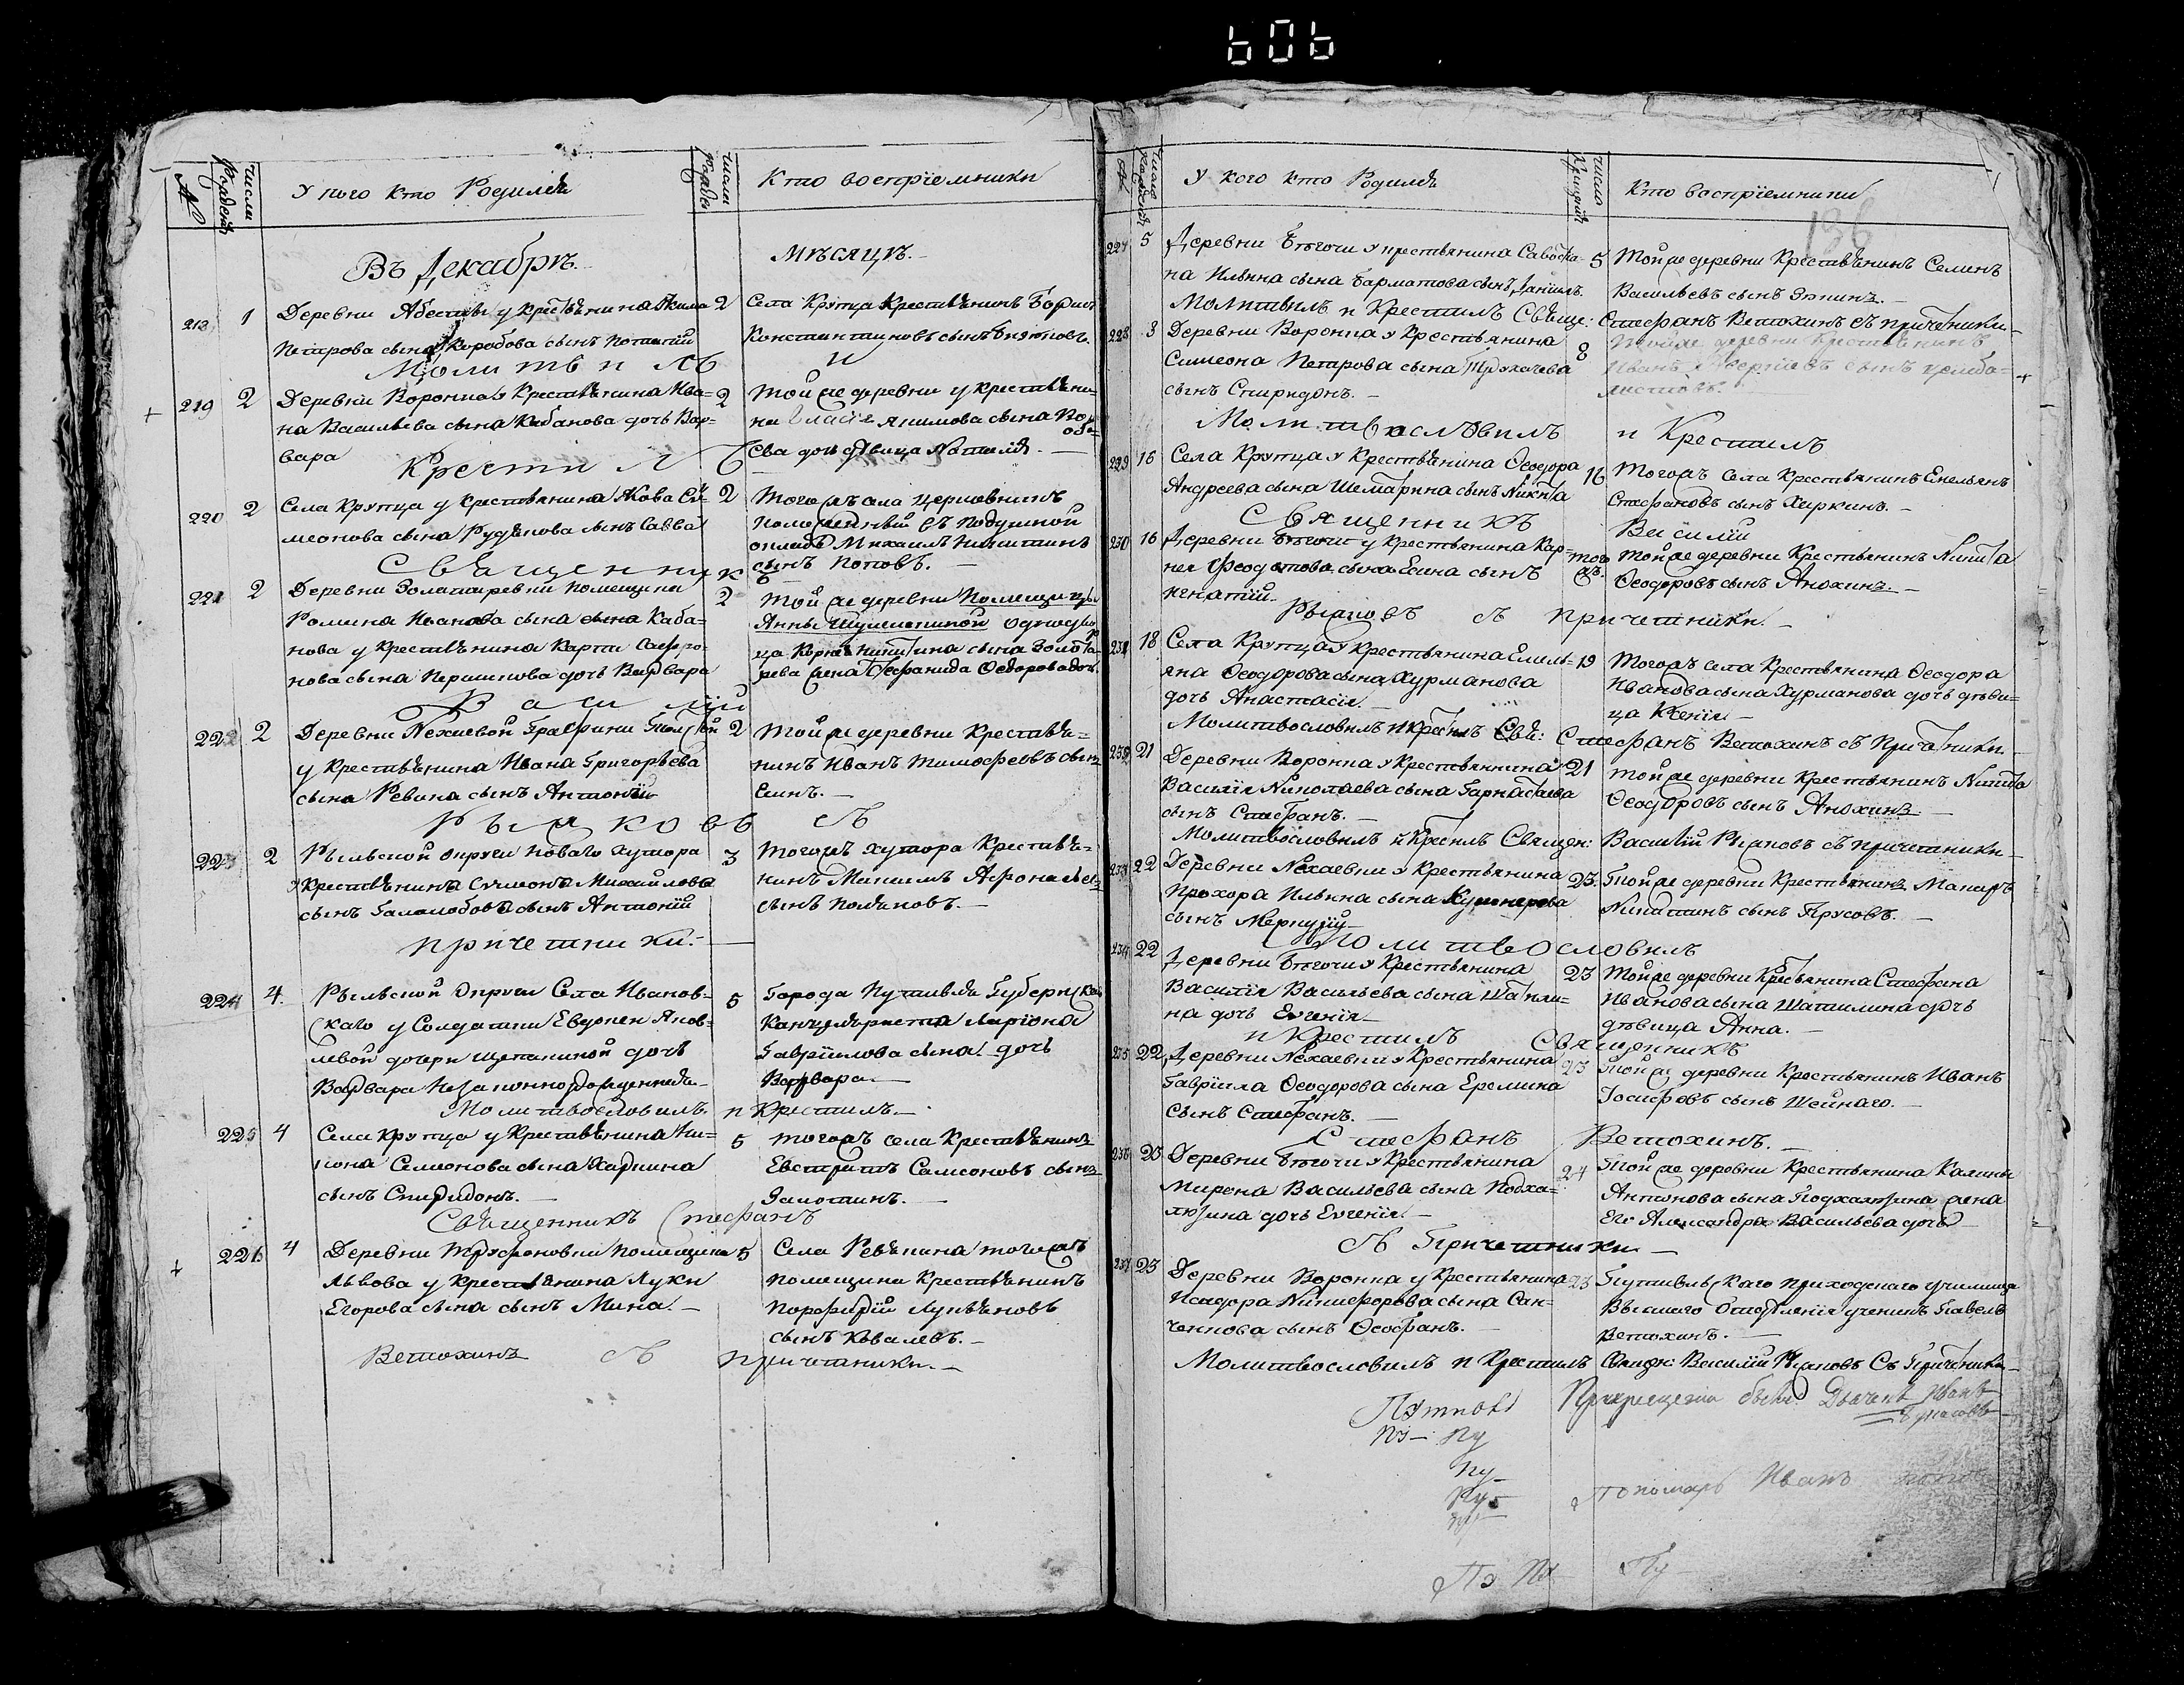 606
№
число рожденія
У кого кто Родился
число рожден
Кто воспріемники
Въ Декабрѣ
мѣсяцѣ.
218 1 Деревни Абеста у Крестьянина Акима
Петрова сына Коробова сынъ Потапій
2 Села Крупца Крестьянинъ Борисъ
Константиновъ сынъ
Молитвилъ
и
219 2 Деревни Воронка у Крестьянина Ива-
на Васильева сына Кабанова дочь Вар-
вара
2 той же деревни у крестьяни-
на Якимова сына
ева дочь дѣвица Наталія.
Крестилъ
220 2 Села Крупца у крестьянина Якова Си-
меонова сына Рудакова сынъ Савва
2 Того жъ села церковникъ
положенный въ подушной
окладъ Михаилъ Никитинъ
сынъ Поповъ.
Священникъ
221 2 Деревни Золатаревки помещика
Романа Иванова сына сына Каба-
нова у крестьянина Карпа Сафро-
нова сына Першикова дочь Варвара
2 той же деревни Помещицы
Анны Шумейкиной однодвор
ца Корнѣя Никитина сына Золота-
рева жена Стефанида Ѳедорова дочь.
Василій
222 2 Деревни Нехаевой Графини Толстой
у Крестьянина Ивана Григорьева
сына Ревина сынъ Антоній
2 той же деревни Крестья-
нинъ Иванъ Тимофеевъ сынъ
Еминъ.
Рыжковъ съ
223 2 Рыльской округи Новаго Хутора
у Крестьянина Симеона Михайлова
сынъ Галолобова сынъ Антоній
3 Тогожъ хутора Крестья-
нинъ Максимъ Афонасьевъ
сынъ Поляковъ.
причетники.
224 4. Рыльской Округи Села Иванов-
скаго у Солдатки Евдокеи Яков-
левой дочери Щепакиной дочь
Варвара Незаконнорожденная
5 Города Путивля Губернска
Канцеляриста Ларіона
Гавріилова сына дочь
Варвара
Молитвословилъ. и Крестилъ.
225 4 Села Крупца у Крестьянина Ти-
хона Семионова сына Харкина
сынъ Спиридонъ.
5 тогожъ села Крестьянинъ
Евстратъ Самсоновъ сынъ
Замотинъ.
Священникъ Стефанъ
226 4 Деревни Труфановки помещика
Львова у крестьянина Луки
Егорова сына сынъ Мина.
5 Села Ревякина тогожъ
помещика Крестьянинъ
Порфирій Лукьяновъ
сынъ Ковалевъ.
Ветохинъ съ причетники.
136
№
Число рожденія
У кого кто Родился
число крещенія
Кто воспріемники
227 5 Деревни Бѣгочи у крестьянина Савостья-
на Ильина сына Барматова сынъ Даніилъ.
5 той же деревни Крестьянинъ Семенъ
Васильевъ сынъ Зюкинъ.
Молитвилъ и Крестилъ Свяще: Стефанъ Ветохинъ съ причетники
228 8 Деревни Воронка у Крестьянина
Симеона Петрова сына Трохачева
сынъ Спиридонъ.
8 той же деревни Крестьянинъ
Иванъ Аверкіевъ сынъ
Молитвословилъ и Крестилъ
229 16 Села Крупца у Крестьянина Ѳеодора
Андреева сына Шемарина сынъ Никита
16 тогожъ Села Крестьянинъ Емельянъ
Стефановъ сынъ Хиркинъ.
Священникъ Василій
230 16 Деревни Бѣгочи у Крестьянина Кар-
нея Ѳеодотова сына Есина сынъ
Игнатій
тогожъ. той же деревни Крестьянинъ Никита
Ѳеодоровъ сынъ Анохинъ.
Рыжковъ съ причетники.
231 18 Села Крупца у Крестьянина Емель-
яна Ѳеодорова сына Хурманова
дочь Анастасія.
19 тогожъ села Крестьянина Ѳеодора
Иванова сына Хурманова дочь дѣви-
ца Ксенія.
Молитвословилъ и Крестилъ Свя: Стефанъ Ветохинъ съ Причетники
232 21 Деревни Воронка у Крестьянина
Василія Николаева сына Гарнастаева
сынъ Стефанъ.
21 той же деревни Крестьянинъ Никита
Ѳеодоровъ сынъ Анохинъ
Молитвословилъ и Крестилъ Священ: Василій Рыжковъ съ причетники
233 22 Деревни Нехаевки у Крестьянина
Прохора Ильина сына
сынъ Меркурій
23. той же деревни Крестьянинъ Макаръ
Никитинъ сынъ Трусовъ.
Молитвословилъ
234 22 Деревни Бѣгочи у Крестьянина
Василія Васильева сына Шатили-
на дочь Евгенія
23 той же деревни Крестьянина Стефана
Иванова сына Шатилина дочь
дѣвица Анна.
и Крестилъ Священникъ
235 22 Деревни Нехаевки у Крестьянина
Гавріила Ѳеодорова сына Еремина
сынъ Стефанъ.
23 той же деревни Крестьянинъ Иванъ
Іосифовъ сынъ Шейнаго.
Стефанъ Ветохинъ.
236 23 Деревни Бѣгочи у Крестьянина
Мирона Васильева сына Подха-
люзина дочь Евгенія.
24 той же деревни Крестьянина Калины
Антонова сына Подхалюзина жена
Его Александра Васильева дочь
съ Причетники
237 25 Деревни Воронка у Крестьянина
Исидора Никифорова сына Сан-
ченкова сынъ Ѳеофанъ.
25 Путивльскаго приходскаго училища
Высшаго Отдѣленія ученикъ Павелъ
Ветохинъ.
Молитвословилъ и Крестилъ Священ: Василій Рыжковъ Съ Причетники
При крещеніи были Дьячекъ Иванъ
Пономарь Иванъ